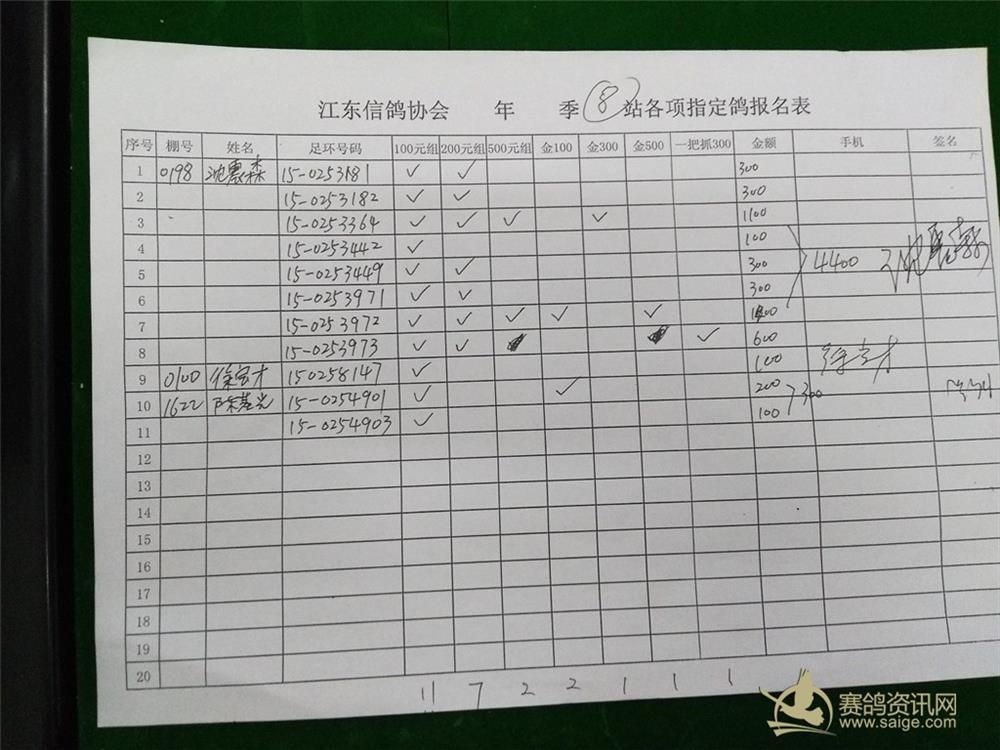 江东信鸽协会 年 季 8 站各项指定鸽报名表
序号 棚号 姓名 足环号码 100元组 200元组 500元组 金100 金300 金500 一把抓300 金额 手机 签名
1 0198 沈 森 15-0253181 ✓ ✓ 300
2 15-0253182 ✓ ✓ 300
3 15-0253364 ✓ ✓ ✓ ✓ 1100
4 15-0253442 ✓ 100
5 15-0253449 ✓ ✓ 300 4400
6 15-0253971 ✓ ✓ 300
7 15-0253972 ✓ ✓ ✓ ✓ ✓
8 15-0253973 ✓ ✓ ✓ 600
9 0100 徐宝才 150258147 ✓ 100
10 1622 陈基光 15-0254901 ✓ ✓ 200 300
11 15-0254903 ✓ 100
12
13
14
15
16
17
18
19
20
11 7 2 2 1 1 1
赛鸽资讯网
www.saige.com